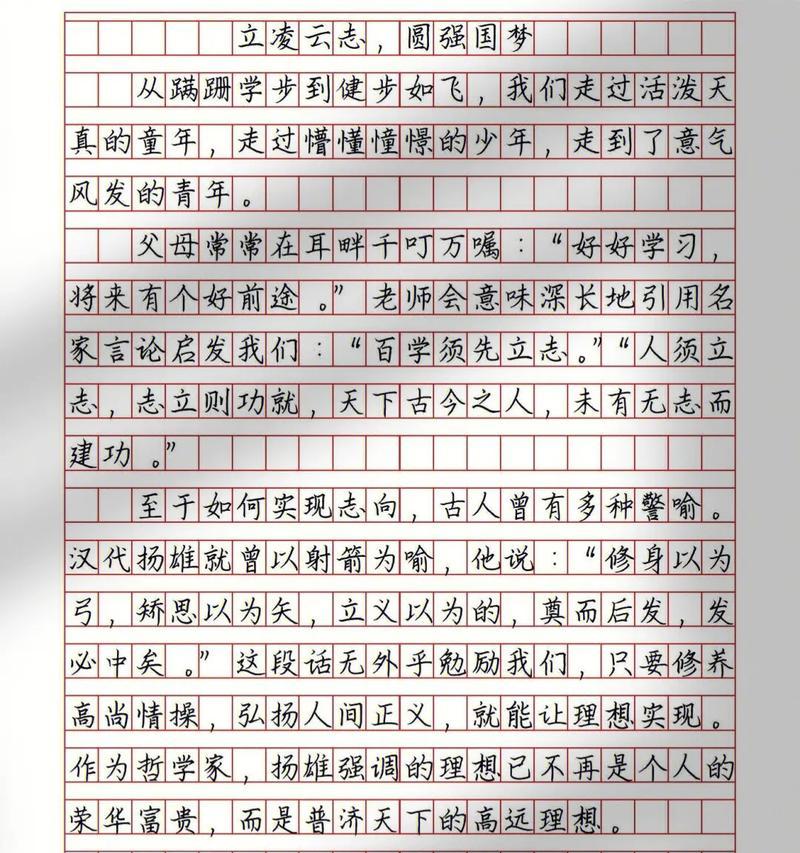 立凌云志，圆强国梦
从蹒跚学步到健步如飞，我们走过活泼天
真的童年，走过懵懂憧憬的少年，走到了意气
风发的青年。
父母常常在耳畔千叮万嘱：“好好学习，
将来有个好前途。”老师会意味深长地引用名
家言论启发我们：“百学须先立志。”“人须立
志，志立则功就，天下古今之人，未有无志而
建功。”
至于如何实现志向，古人曾有多种警喻。
汉代扬雄就曾以射箭为喻，他说：“修身以为
弓，矫思以为矢，立义以为的，奠而后发，发
必中矣。”这段话无外乎勉励我们，只要修养
高尚情操，弘扬人间正义，就能让理想实现。
作为哲学家，扬雄强调的理想已不再是个人的
荣华富贵，而是普济天下的高远理想。